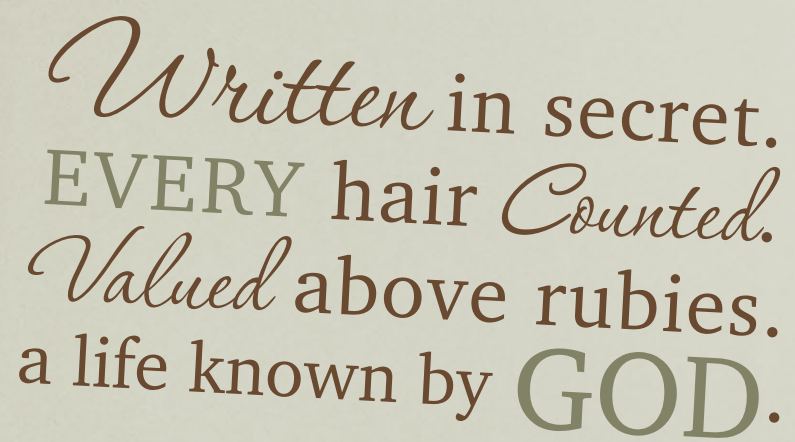 Written in secret.
EVERY hair Counted.
Valued above rubies.
a life known by GOD.